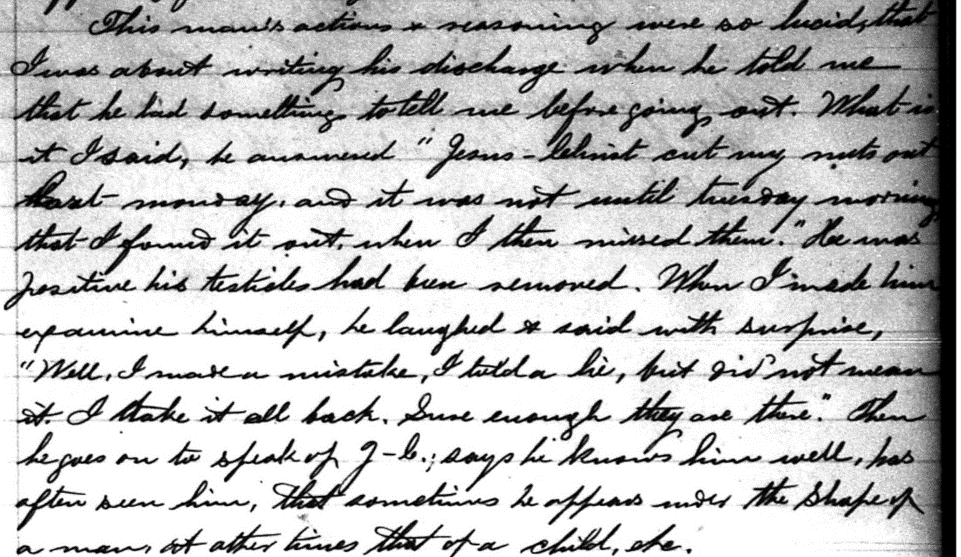 This man's actions & reasoning were so lucid, that
I was about writing his discharge when he told me
that he had something to tell me before going out. What is
it I said, he answered "Jesus-Christ cut my nuts out
last monday, and it was not until tuesday morning
that I found it out, when I then missed them." He was
positive his testicles had been removed. When I made him
examine himself, he laughed & said with surprise,
"Well, I made a mistake, I told a lie, but did not mean
it. I take it all back. Sure enough they are there." Then
he goes on to speak of J-C.; says he knows him well, has
often seen him, that sometimes he appears under the shape of
a man, at other times that of a child, etc.